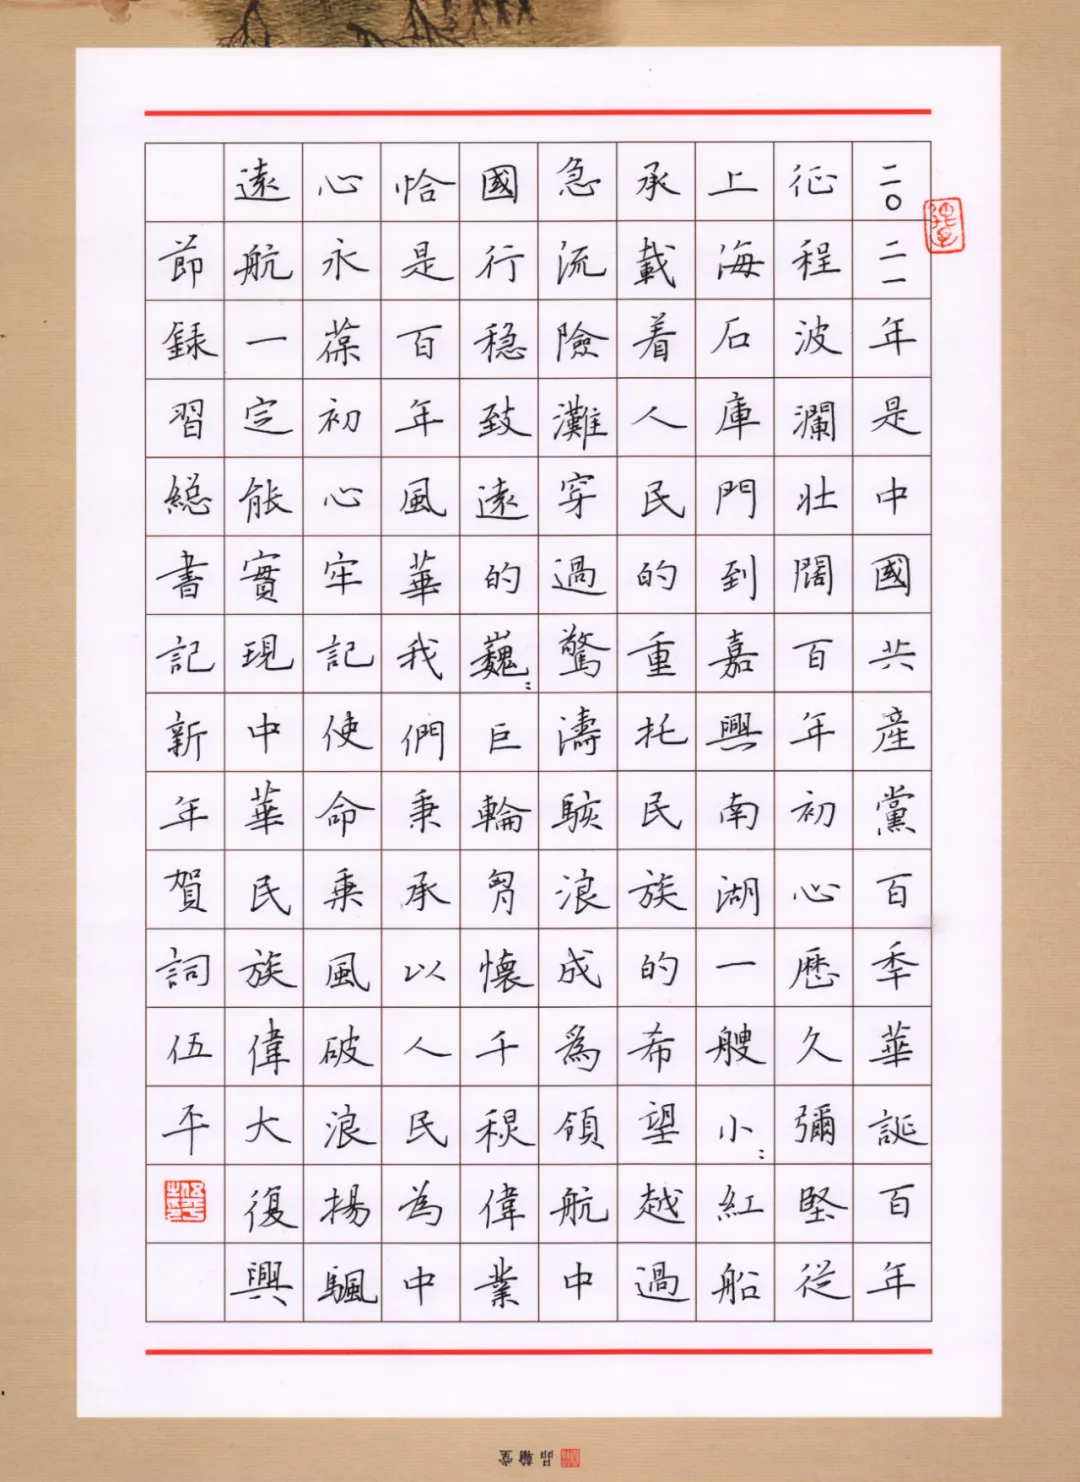 二〇二一年是中國共產黨百年華誕百年
征程波瀾壯闊百年初心歷久彌堅從
上海石庫門到嘉興南湖一艘小:紅船
承載着人民的重托民族的希望越過
急流險灘穿過驚濤駭浪成為領航中
國行穩致遠的巍:巨輪胷懷千秋偉業
恰是百年風華我們秉承以人民為中
心永葆初心牢記使命乘風破浪揚颿
遠航一定能實現中華民族偉大復興
節録習總書記新年賀詞伍平